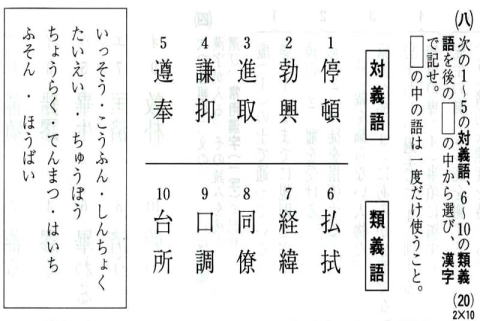 (八) 次の1～5の対義語、6～10の類義
語を後の□の中から選び、漢字
で記せ。
□の中の語は一度だけ使うこと。
(20)
2×10
対義語
1 停頓
2 勃興
3 進取
4 謙抑
5 遵奉
類義語
6 払拭
7 経緯
8 同僚
9 口調
10 台所
いっそう・こうふん・しんちょく
たいえい・ちゅうぼう
ちょうらく・てんまつ・はいち
ふそん・ほうばい